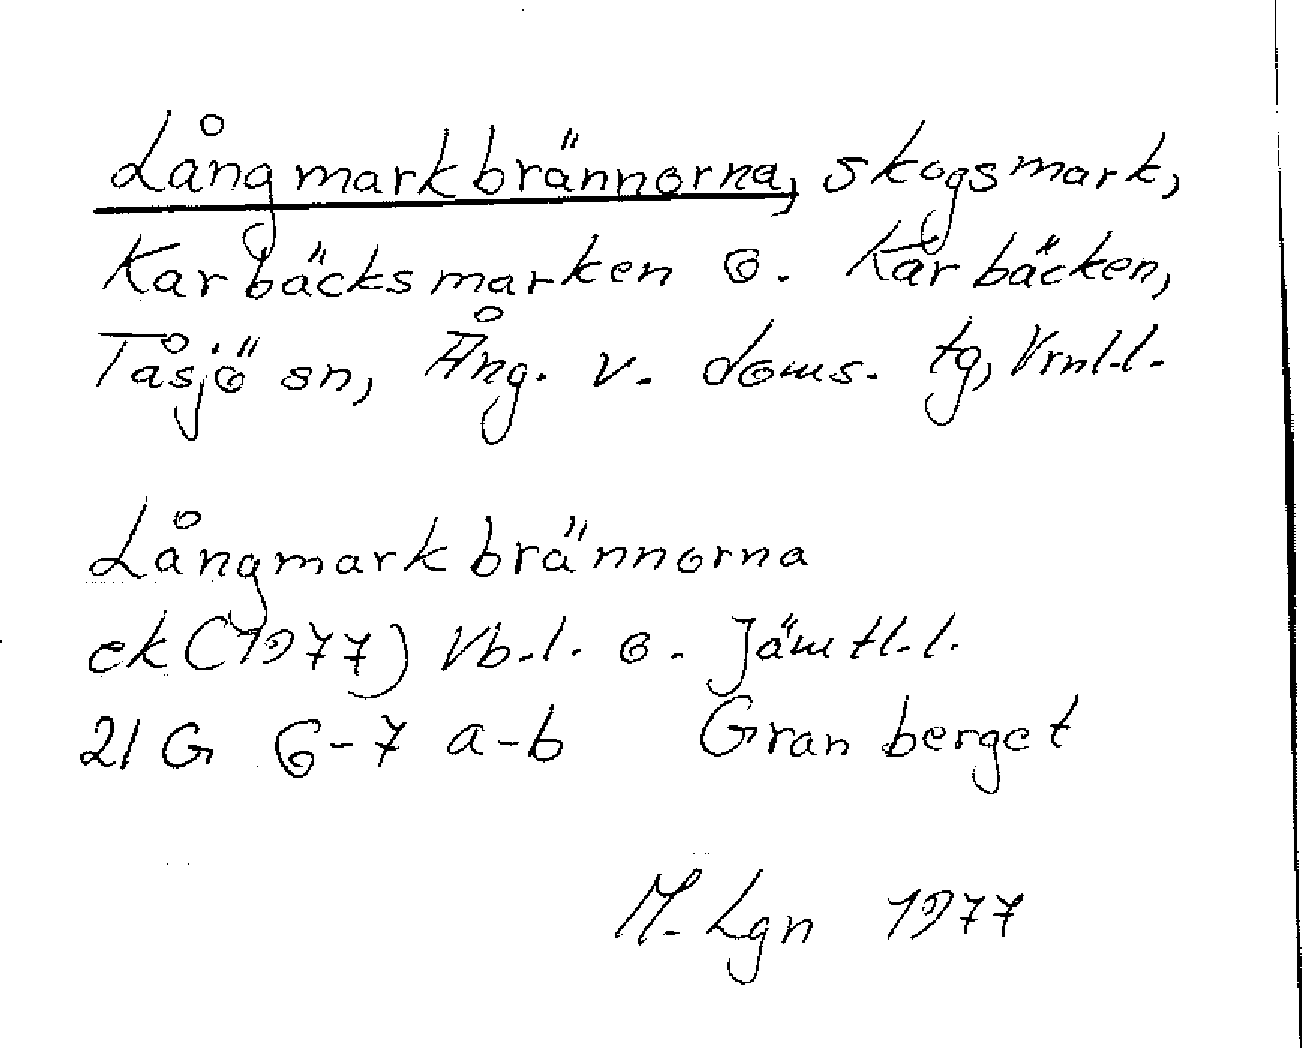 Långmarkbrännorna, skogsmark,
Karbäcksmarken o. Karbäcken,
Tåsjö sn, Ång. v. doms. tg, Vrnl.l.
Långmarkbrännorna
ek (1977) Vb.l. o. Jämtl.l.
21 G 6-7 a-b Granberget
M. Lgn 1977